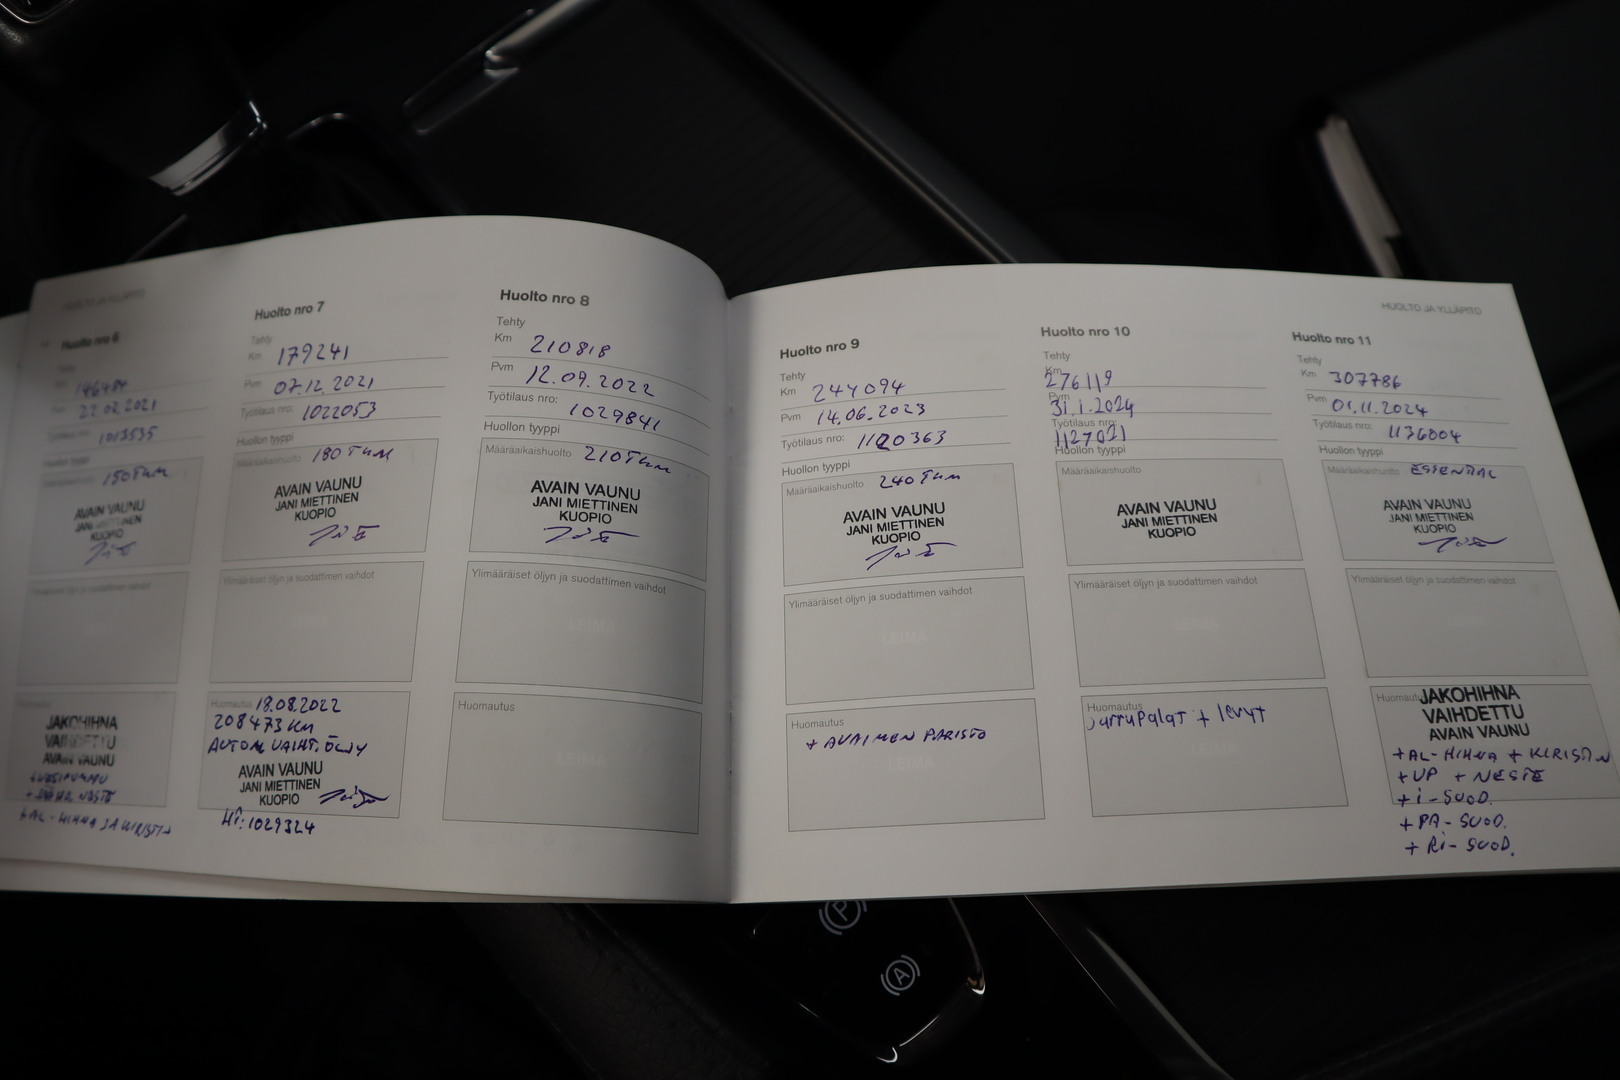 HUOLTO JA YLLÄPITO
Huolto nro 6
Tehty
Km 146484
Pvm 22.02.2021
Työtilaus nro: 1013535
Huollon tyyppi
Määräaikaishuolto 150 TKM
AVAIN VAUNU
JANI MIETTINEN
KUOPIO
Ylimääräiset öljyn ja suodattimen vaihdot
Huomautus
JAKOHIHNA
VAIHDETTU
AVAIN VAUNU
+ VESIPUMPPU
+ JÄÄHD. NESTE
+ AL-HIHNA JA KIRISTIN
Huolto nro 7
Tehty
Km 179241
Pvm 07.12.2021
Työtilaus nro: 1022053
Huollon tyyppi
Määräaikaishuolto 180 TKM
AVAIN VAUNU
JANI MIETTINEN
KUOPIO
Ylimääräiset öljyn ja suodattimen vaihdot
LEIMA
Huomautus 18.08.2022
208473 KM
AUTOM. VAIHT. ÖLJY
AVAIN VAUNU
JANI MIETTINEN
KUOPIO
1029324
Huolto nro 8
Tehty
Km 210818
Pvm 12.09.2022
Työtilaus nro: 1029841
Huollon tyyppi
Määräaikaishuolto 210 TKM
AVAIN VAUNU
JANI MIETTINEN
KUOPIO
Ylimääräiset öljyn ja suodattimen vaihdot
LEIMA
Huomautus
LEIMA
Huolto nro 9
Tehty
Km 244094
Pvm 14.06.2023
Työtilaus nro: 1120363
Huollon tyyppi
Määräaikaishuolto 240 TKM
AVAIN VAUNU
JANI MIETTINEN
KUOPIO
Ylimääräiset öljyn ja suodattimen vaihdot
LEIMA
Huomautus
+ AVAIMEN PARISTO
LEIMA
Huolto nro 10
Tehty
Km 276119
Pvm 31.1.2024
Työtilaus nro: 1127021
Huollon tyyppi
Määräaikaishuolto
AVAIN VAUNU
JANI MIETTINEN
KUOPIO
Ylimääräiset öljyn ja suodattimen vaihdot
LEIMA
Huomautus
jarrupalat + levyt
LEIMA
HUOLTO JA YLLÄPITO
Huolto nro 11
Tehty
Km 307786
Pvm 01.11.2024
Työtilaus nro: 1136004
Huollon tyyppi
Määräaikaishuolto ESSENTIAL
AVAIN VAUNU
JANI MIETTINEN
KUOPIO
Ylimääräiset öljyn ja suodattimen vaihdot
LEIMA
Huomautus
JAKOHIHNA
VAIHDETTU
AVAIN VAUNU
+ AL-HIHNA + KIRISTIN
+ VP + NESTE
+ i-SUOD.
+ PA-SUOD.
+ Ri-SUOD.
P
A